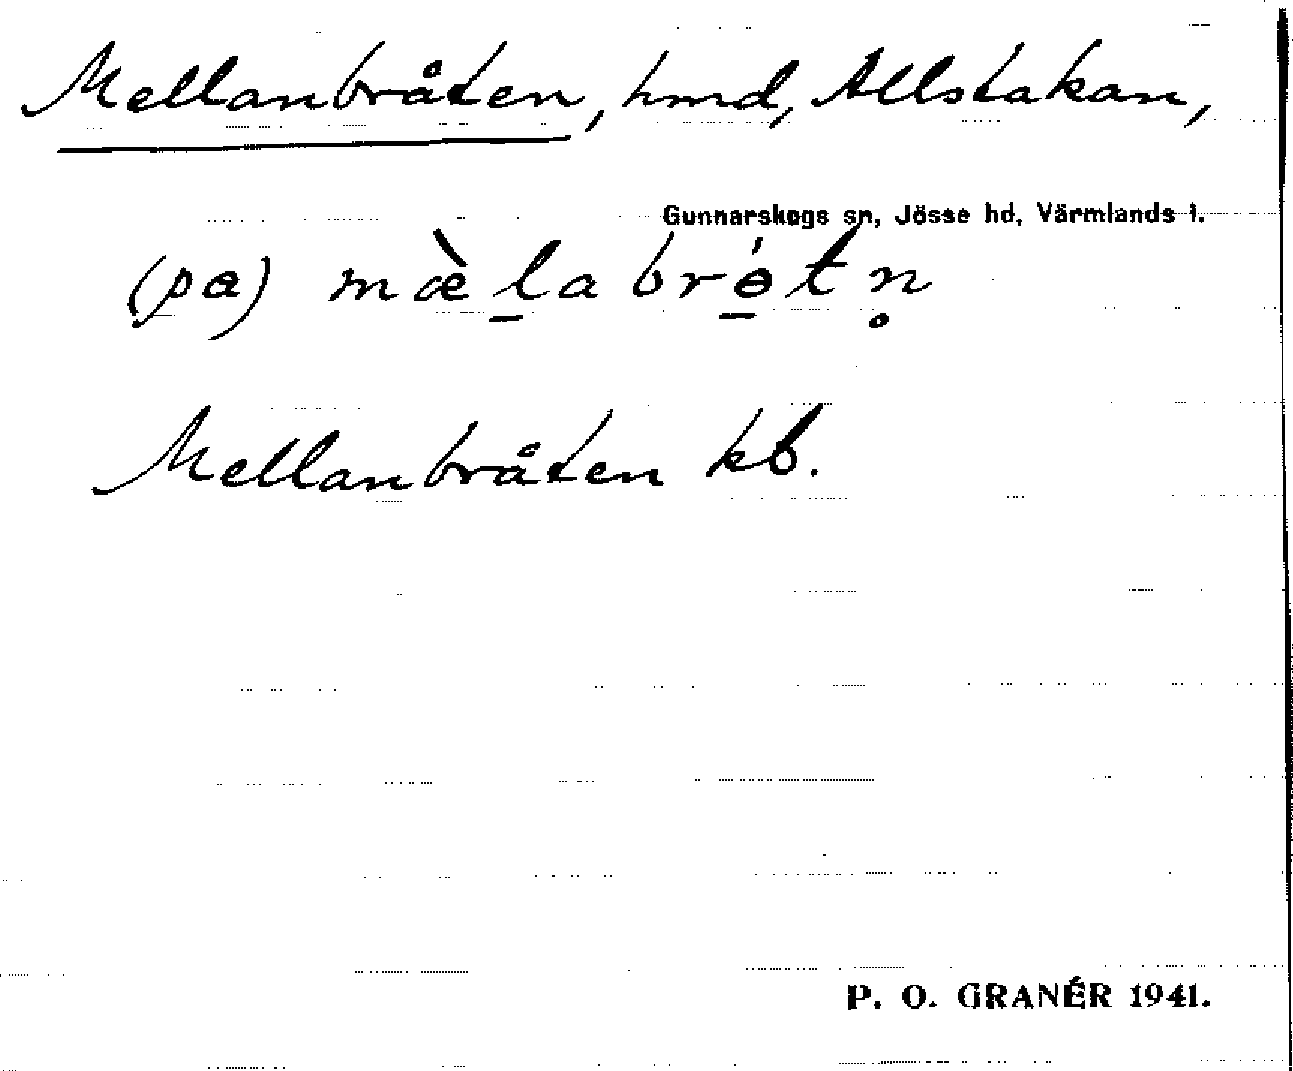 Mellanbråten, hmd, Allstakan,
Gunnarskogs sn, Jösse hd, Värmlands l.
(pa) mæ̀l̲a brө̲́tn̥
Mellanbråten kb.
P. O. GRANÉR 1941.